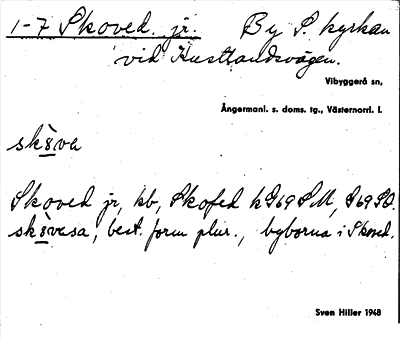 1-7 Skoved. jr. By S. kyrkan
vid Kustlandsvägen.
Vibyggerå sn,
Ångermanl. s. doms. tg., Västernorrl. l.
sköva
Skoved jr, kb, Skofed k
skövasa, best. form plur., byborna i Skoved.
Sven Hiller 1948